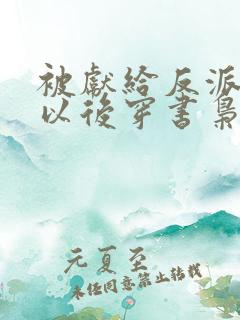 被獻給反派
以後穿書梟
元夏至
未经同意禁止转载